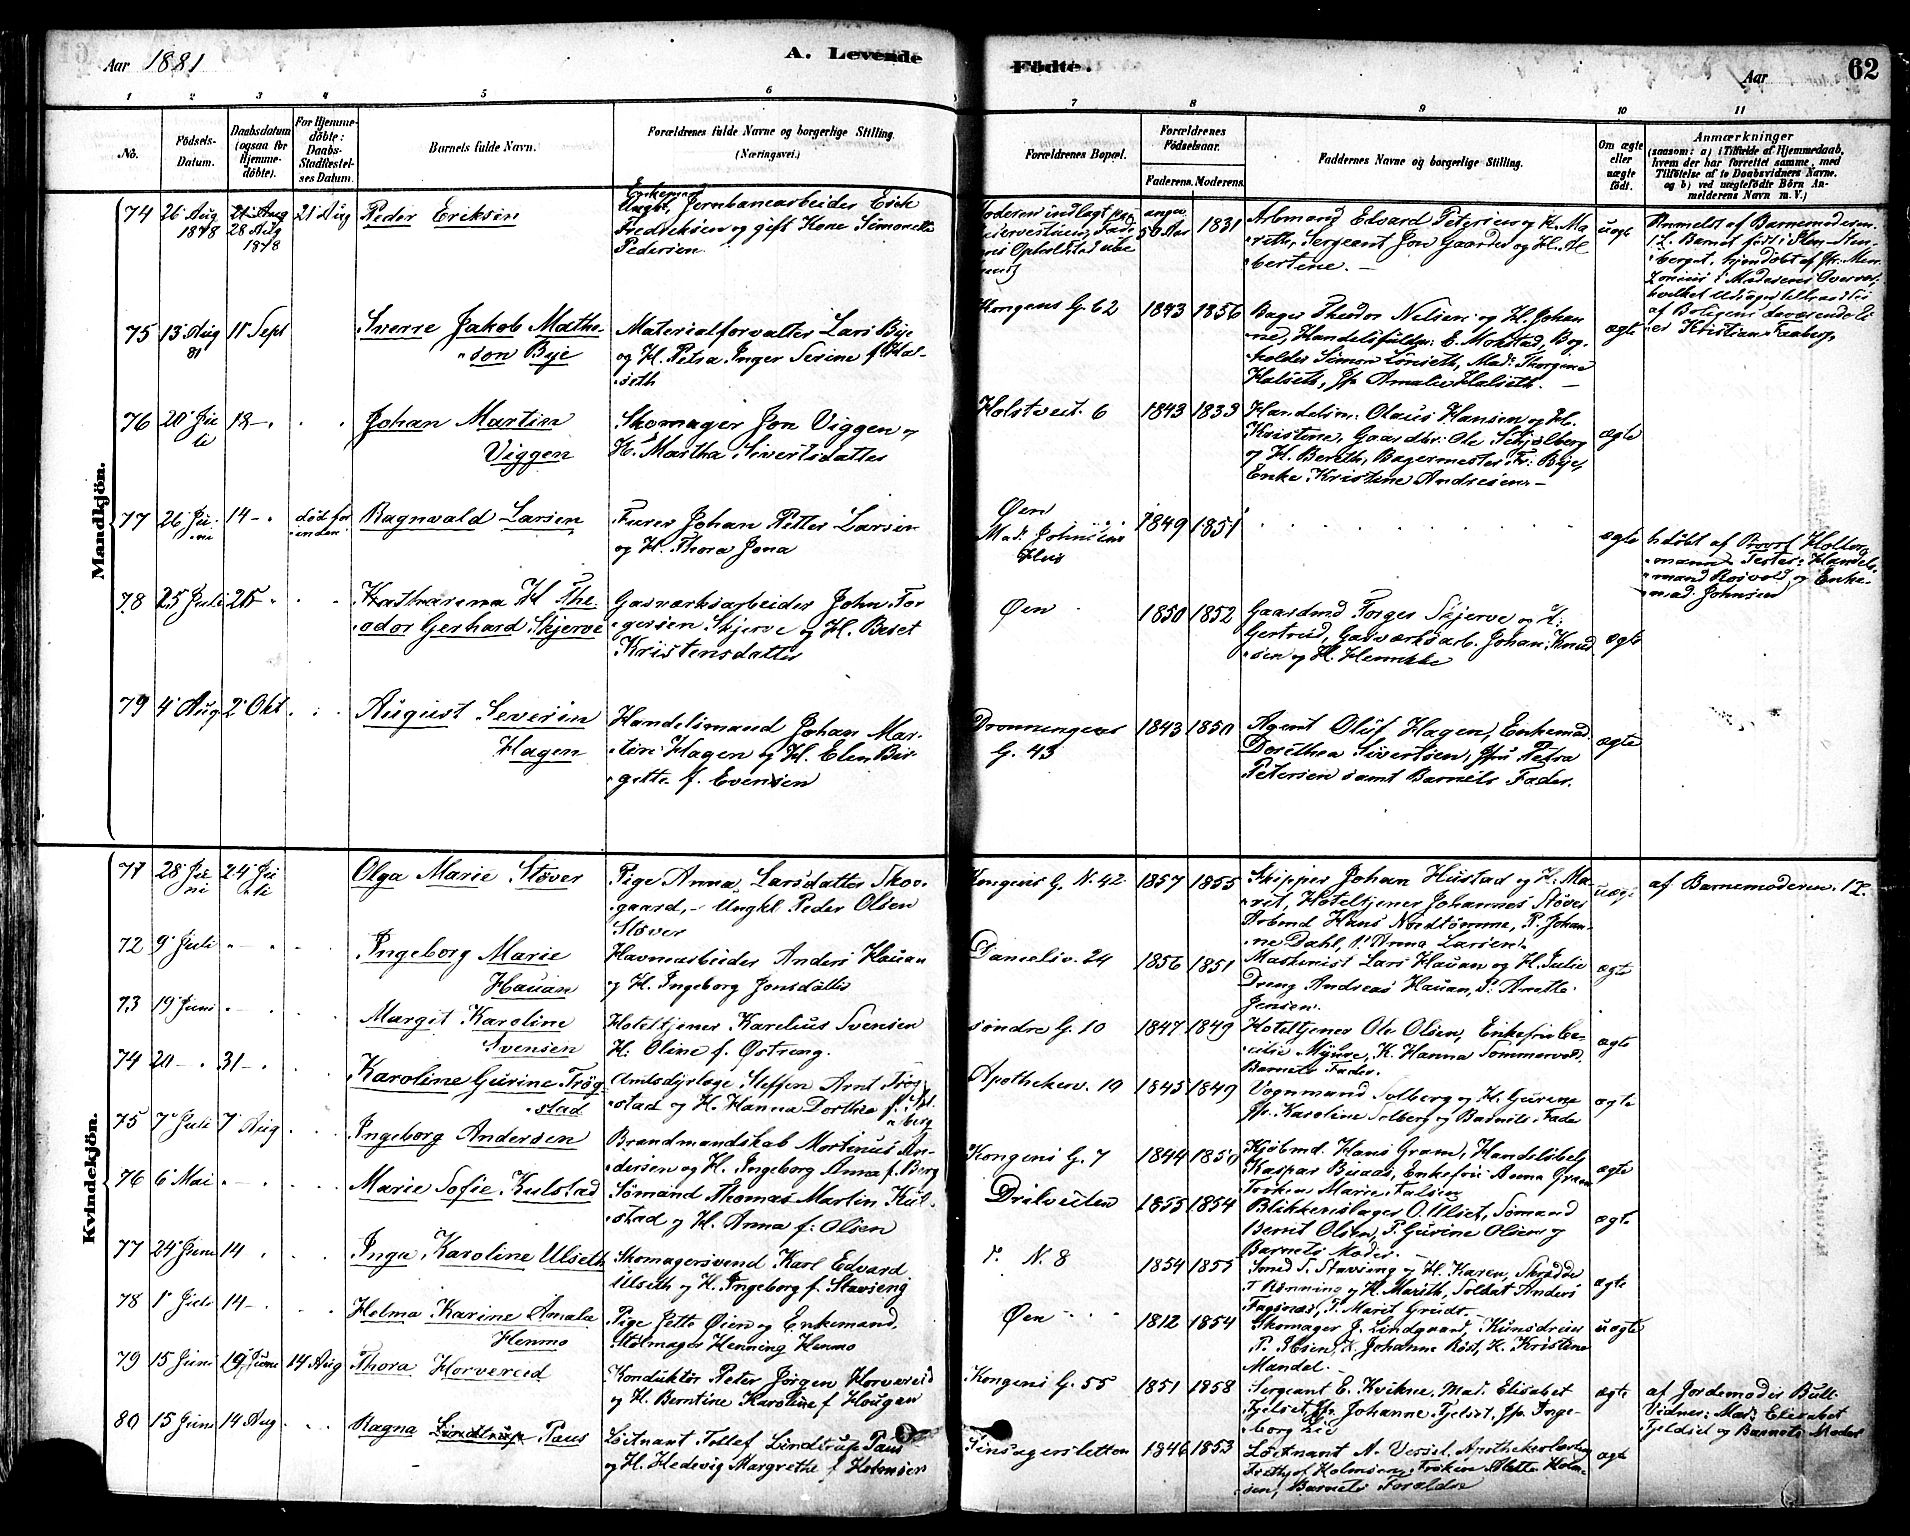 Aar 1881
A. Levende
Fødte.
Aar
62
1 2 3 4 5 6 7 8 9 10 11
No.
Fødsels-Datum.
Daabsdatum (ogsaa for Hjemme-døbte).
For Hjemme-døbte: Daabs-Stadfæstel-ses Datum.
Barnets fulde Navn.
Forældrenes fulde Navne og borgerlige Stilling. (Næringsvei.)
Forældrenes Bopæl.
Forældrenes Fødselsaar.
Faderens. Moderens.
Faddernes Navne og borgerlige Stilling.
Om ægte eller uægte født.
Anmærkninger
(saasom: a) i Tilfælde af Hjemmedaab,
hvem der har forrettet samme, med
Tilføielse af to Daabsvidners Navne.
og b) ved uægtefødte Børn An-
melderens Navn m. V.)
Mandkjøn.
74 26 Aug 1878 21 Aug 28 Aug 1878 21 Aug Peder Eriksen
Enkemand Jernbanearbeider Erik
Fredriksen og gift Kone Simonette
Pedersen
1831
Arbmand Edvard Petersen og H. Ma-
reth, Sergeant Jon Gaarde og H. Al-
bertine. —
uægte
Anmeldt af Barnemoderen
75 13 Aug 81 11 Sept Sverre Jakob Mathe-
son Bye
Materialforvalter Lars Bye
og H. Petra Inger Serine f. Hal-
seth
Kongens G. 62 1843 1856
Bager Theodor Nilsen og H. Johan
ne, Handelsfuldm. E. Mokstad, Bog-
holder Simon Lönseth, Mad. Thorgine
Halseth, Jfr Amalie Halseth. —
ægte
er Kristian Faaberg.
76 20 Juli 18 — Johan Martin
Viggen
Skomager Jon Viggen og
H. Martha Sivertsdatter
Holstveit. 6 1843 1833
Handelsm: Olaus Hansen og H.
Kristine, Gaardbr: Ole Schjölberg
og H. Bereth, Bagermester Fr: Bye,
Enke Kristine Andresen —
ægte
77 26 Juni 14 — død for inden Ragnvald Larsen
Furer Johan Petter Larsen
og H. Thora Jona
Øen
Mad: Johnsens
Hus
1849 1851
ægte
hjdøbt af Provst Holler-
mann Testes: Handels-
mand Rosvold og Enke-
mad. Johnsen
78 25 Juli 25 Katharinus H. The-
odor Gerhard Skjerve
Gasværksarbeider John Tor-
gersen Skjerve og H. Beret
Kristensdatter
Øen 1850 1852
Gaardmd Torger Skjerve og H:
Gertrud, Gasværksarb. Johan Knud
sen og H. Henrikke
ægte
79 4 Aug 2 Okt August Severin
Hagen
Handelsmand Johan Mar-
tin Hagen og H. Elen Bir-
gitte f. Evensen
Dronningens
G. 43
1843 1850
Agent Oluf Hagen, Enkemad.
Dorethea Sivertsen, Jfr Petra
Petersen samt Barnets Fader.
ægte
Kvindekjøn.
71 28 Juni 24 Juli Olga Marie Støver
Pige Anna Larsdatter Skov-
gaard, — Ungkl Peder Olsen
Støver
Kongens G. N. 42 1857 1855
Skipper Johan Hustad og H. Ma-
rit, Hoteltjener Johannes Støver
Arbmd Hans Nordtømme, P. Johan-
ne Dahl, P. Anna Larsen
uægte
af Barnemoderen 1 L.
72 9 Juli Ingeborg Marie
Hauan
Havnearbeider Anders Hauan
og H. Ingeborg Jonsdatter
Danselv. 24 1856 1851
Maskinist Lars Hauan og H. Julie
Dreng Andreas Hauan, P. Anette
Jensen.
ægte
73 19 Juni Margit Karoline
Svensen
Hoteltjener Karelius Svensen
H: Oline f. Østreng.
søndre G. 10 1847 1849
Hoteltjener Ole Olsen, Enkefru Ce-
cilie Myhre, K. Hanna Sommervold,
Barnets Fader.
ægte
74 20 — 31 — Karoline Gurine Trøg-
stad
Amtsdyrlæge Steffen Arnt Trøg
stad og H. Hanna Dorthea f. Sol-
berg
Apotheker. 19 1845 1849
Vognmand Solberg og H. Gurine
Jfr. Karoline Solberg og Barnets Fader
ægte
75 7 Juli 7 Aug Ingeborg Andersen
Brandmandskab Mortinus An-
dersen og H. Ingeborg Anna f. Berg
Kongens G. 7 1844 1850
Kjøbmd. Hans Gram, Handelsbetj
Kaspar Buaas, Enkefru Anna Gram
Frøken Marie Falsen
ægte
76 6 Mai Marie Sofie Kulstad
Sømand Thomas Martin Kul-
stad og H. Anna f: Olsen
Drilveiten 1855 1854
Blikkenslager O. Ulset, Sømand
Bernt Olsen, P. Gurine Olsen og
Barnets Moder.
ægte
77 24 Juni 14 Inga Karoline Ulseth
Skomagersvend Karl Edvard
Ulseth og H. Ingeborg f. Stavseng
N. 8 1854 1855
Smed T. Stavseng og H. Karen, Skrædder
T Rønning og H. Marith, Soldat Anders
Fagsnæs, P. Marit Gruds.
ægte
78 1 Juli 14 — Helma Karine Amala
Henmo
Pige Jette Øien og Enkemand,
Stolmager Henning Henmo
Øen 1812 1854
Skomager J. Lindgaard, Kunsdreier
P. Ibsen, K. Johanne Röst, K. Kristine
Mandel.
uægte
79 15 Juni 19 Juni 14 Aug Thora Horvereid
Konduktør Peter Jørgen Horvereid
og H. Berntine Karoline f. Hougan
Kongens G. 55 1851 1858
Sergeant E. Kvikne, Mad. Elisabet
Fjelset, Jfr. Johanne Fjelset, Jfr. Inge-
borg Lie
ægte
af Jordemoder Bull
Vidner: Mad: Elisabet
Fjeldset og Barnets Moder
80 15 Juni 14 Aug Ragna Lindtrup Paus
Løitnant Tollef Lindtrup Paus
og H. Hedevig Margrethe f. Holmsen
Finsagersletten 1846 1853
Løitnant A. Vessel, Apothekerlærling
Frethjof Holmsen, Frøken Alette Holm-
sen, Barnets Forældre
ægte